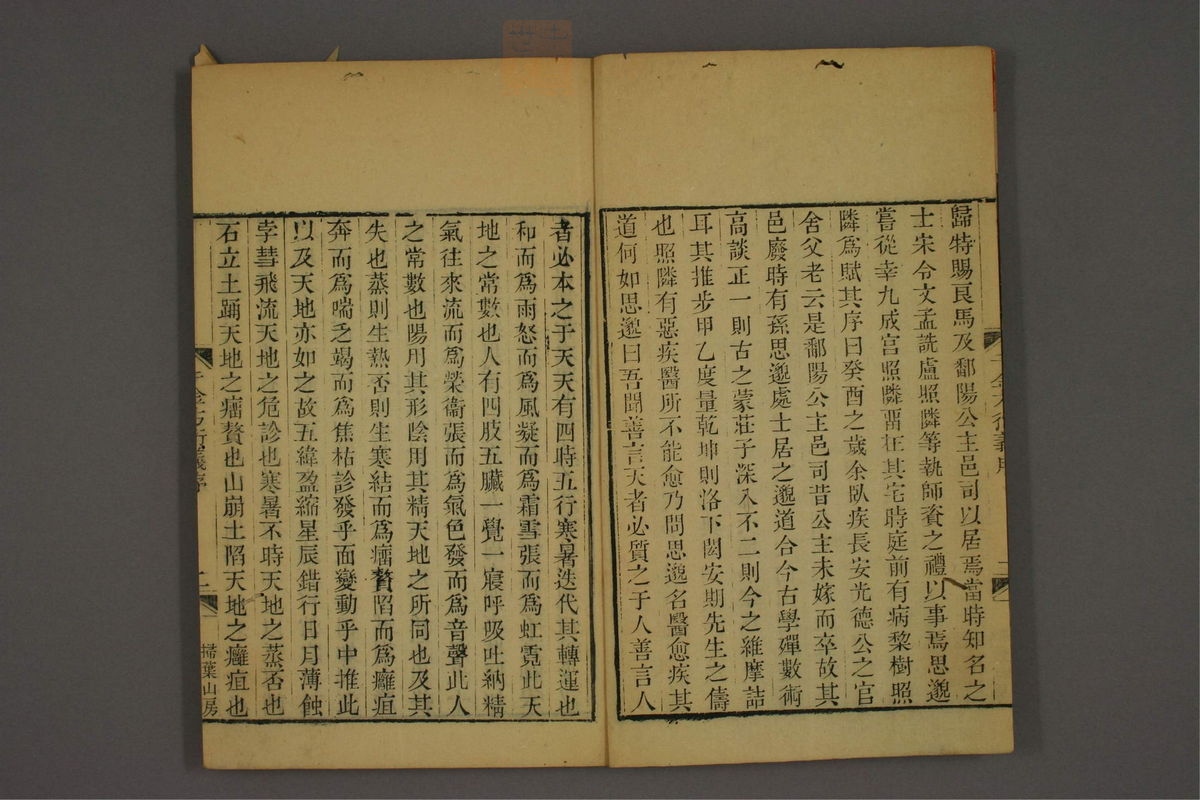 歸特賜良馬及鄱陽公主邑司以居焉當時知名之
士宋令文孟詵盧照隣等執師資之禮以事焉思邈
嘗從幸九成宫照隣畱在其宅時庭前有病棃樹照
隣爲賦其序曰癸酉之歲余臥疾長安光德公之官
舍父老云是鄱陽公主邑司昔公主未嫁而卒故其
邑廢時有孫思邈處士居之邈道合今古學殫數術
高談正一則古之蒙莊子深入不二則今之維摩詰
耳其推步甲乙度量乾坤則洛下閎安期先生之儔
也照隣有惡疾醫所不能愈乃問思邈名醫愈疾其
道何如思邈曰吾聞善言天者必質之于人善言人
者必本之于天天有四時五行寒暑迭代其轉運也
和而爲雨怒而爲風凝而爲霜雪張而爲虹霓此天
地之常數也人有四肢五臟一覺一寢呼吸吐納精
氣往來流而爲榮衞張而爲氣色發而爲音聲此人
之常數也陽用其形陰用其精天地之所同也及其
失也蒸則生熱否則生寒結而爲瘤贅陷而爲癰疽
奔而爲喘乏竭而爲焦枯診發乎面變動乎中推此
以及天地亦如之故五緯盈縮星辰錯行日月薄蝕
孛彗飛流天地之危診也寒暑不時天地之蒸否也
石立土踊天地之瘤贅也山崩土陷天地之癰疽也
千金方衍義序
二
掃葉山房